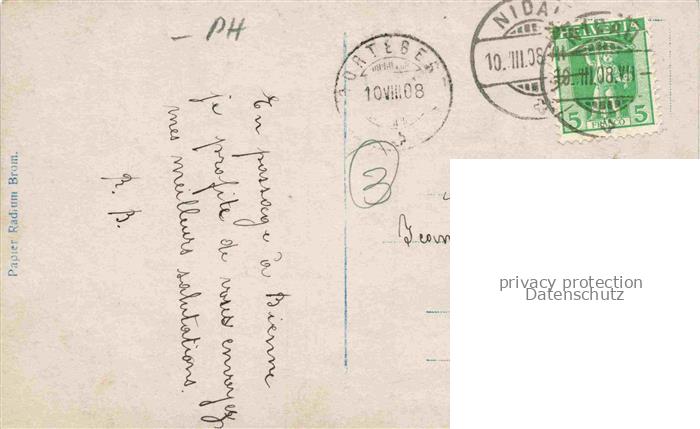 PH
NIDAU
10.VIII.08.VII
10.VIII.08.VII
HELVETIA
5 FRANCO 5
10 VIII 08
3
En passage à Bienne
je profite de vous envoyer
mes meilleurs salutations.
R. B.
Papier Radium Brom.
privacy protection
Datenschutz